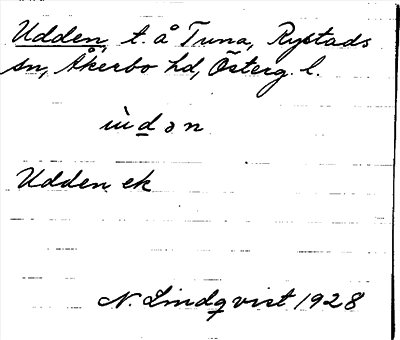 Udden, t. å Tuna, Rystads
sn, Åkerbo hd, Österg. l.
ùdən
Udden ek
N. Lindqvist 1928